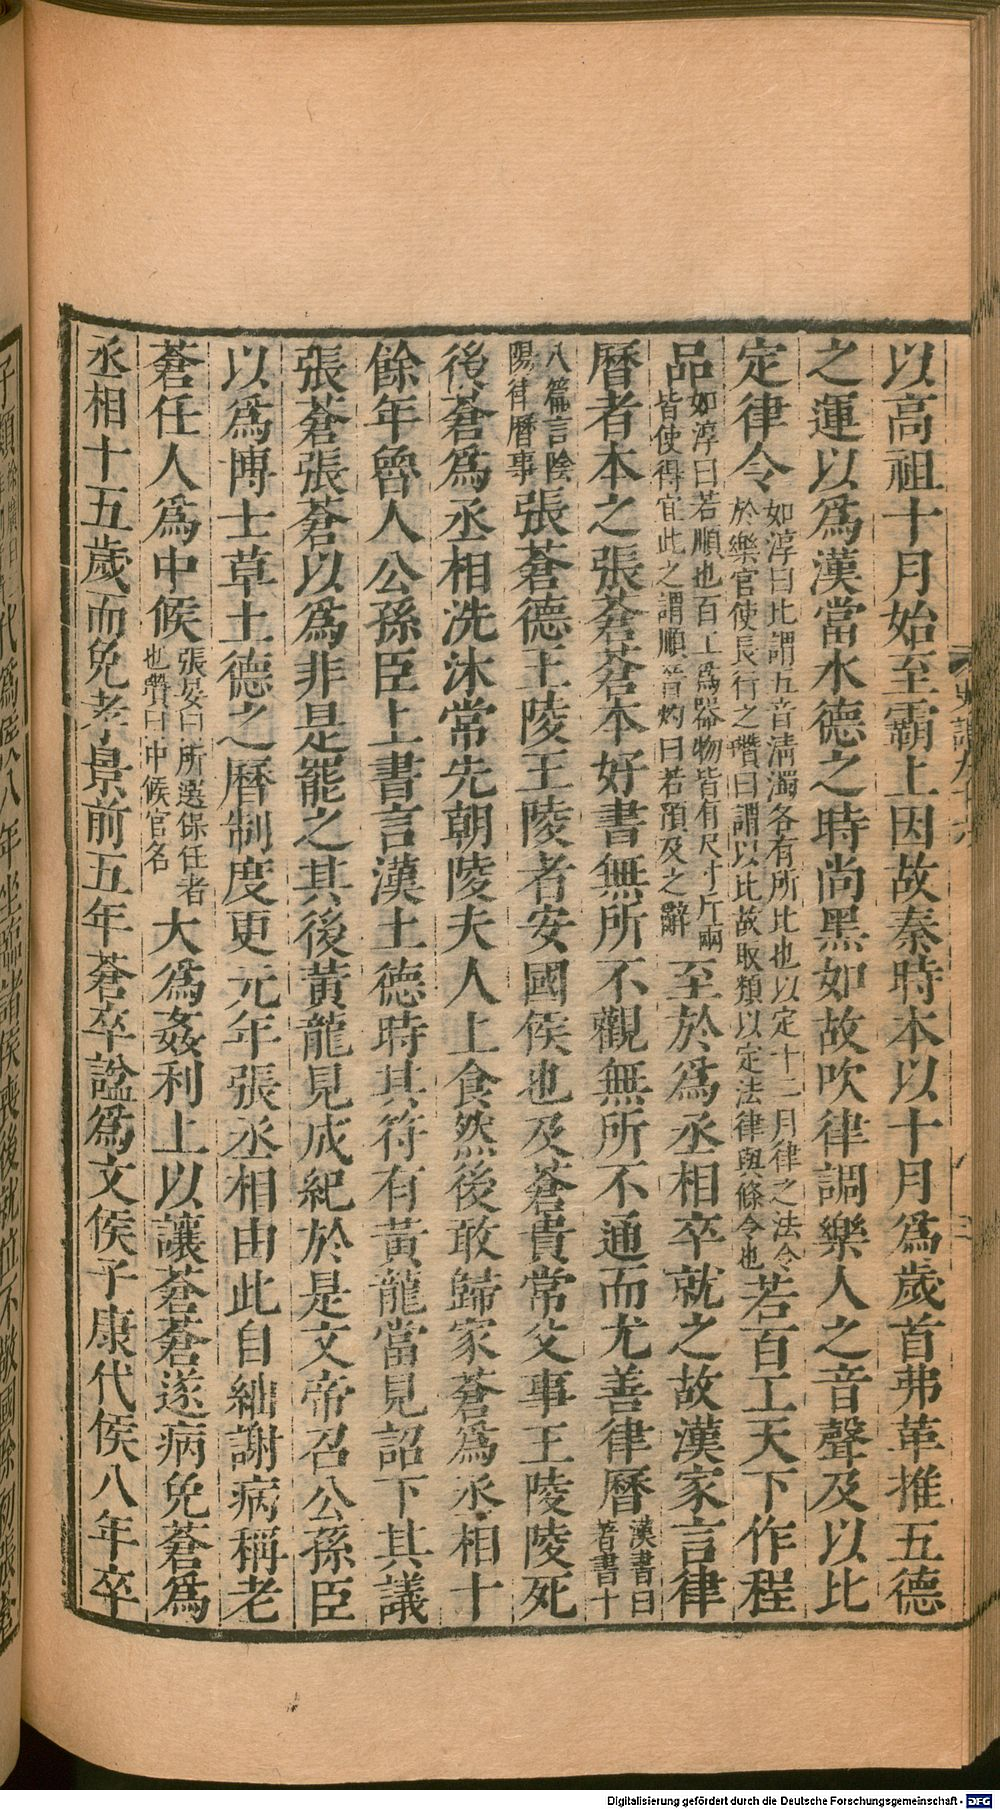 以高祖十月始至霸上因故秦時本以十月爲歲首弗革推五德
之運以爲漢當水德之時尚黑如故吹律調樂人之音聲及以比
定律令如淳曰比謂五音淸濁各有所比也以定十二月律之法令於樂官使長行之瓚曰謂以比故取類以定法律與條令也若百工天下作程
品如淳曰若順也百工爲器物皆有尺寸斤兩皆使得宜此之謂順晉灼曰若預及之辭至於爲丞相卒就之故漢家言律
曆者本之張蒼蒼本好書無所不觀無所不通而尤善律曆漢書曰著書十
八篇言陰陽律曆事張蒼德王陵王陵者安國侯也及蒼貴常父事王陵陵死
後蒼爲丞相洗沐常先朝陵夫人上食然後敢歸家蒼爲丞相十
餘年魯人公孫臣上書言漢土德時其符有黃龍當見詔下其議
張蒼張蒼以爲非是罷之其後黃龍見成紀於是文帝召公孫臣
以爲博士草土德之曆制度更元年張丞相由此自絀謝病稱老
蒼任人爲中候張晏曰所選保任者也瓚曰中候官名大爲姦利上以讓蒼蒼遂病免蒼爲
丞相十五歲而免孝景前五年蒼卒諡爲文侯子康代侯八年卒
Digitalisierung gefördert durch die Deutsche Forschungsgemeinschaft - DFG